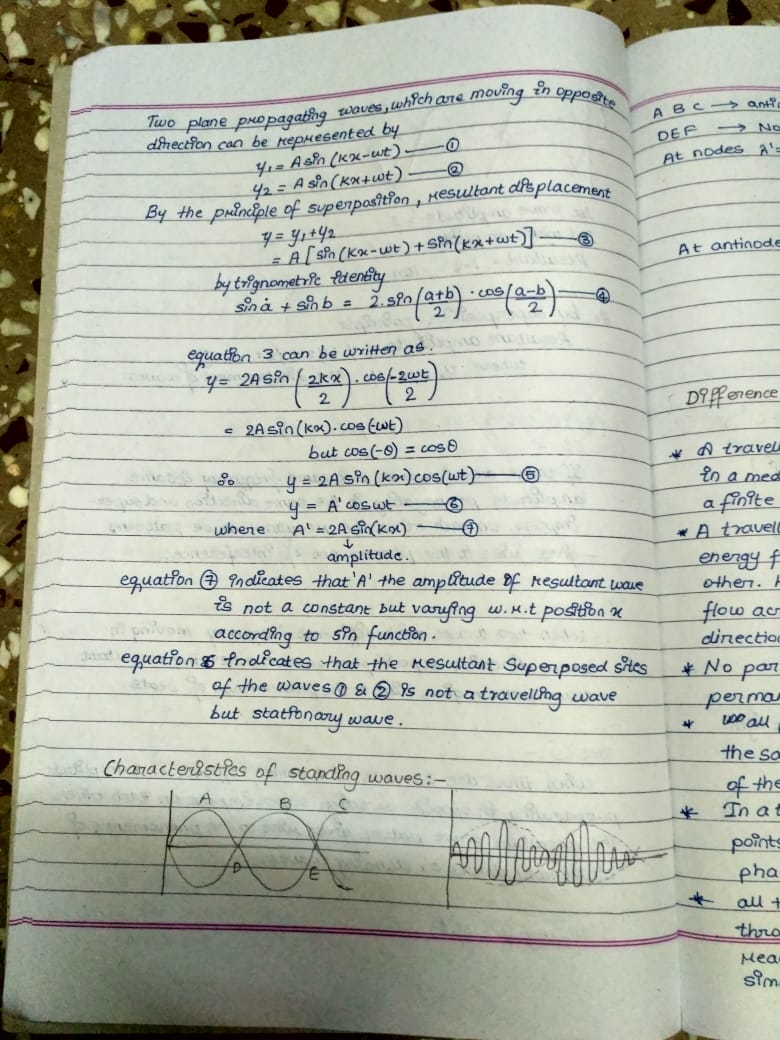 Two plane propagating waves, which are moving in opposite
direction can be represented by
y₁ = A sin (kx-wt) —— ①
y₂ = A sin (kx+wt) —— ②
By the principle of superposition, resultant displacement
y = y₁+y₂
= A [sin(kx-wt) + sin(kx+wt)] —— ③
by trignometric identity
sin a + sin b = 2.sin (a+b/2) . cos (a-b/2) —— ④
equation 3 can be written as.
y = 2A sin (2kx/2) . cos (-2wt/2)
= 2A sin(kx). cos(-wt)
but cos(-θ) = cosθ
∴ y = 2A sin (kx) cos(wt) —— ⑤
y = A' coswt —— ⑥
where A' = 2A sin(kx) —— ⑦
↓
amplitude.
equation ⑦ indicates that 'A' the amplitude of resultant wave
is not a constant but varying w.r.t position x
according to sin function.
equation 6 indicates that the resultant Superposed sites
of the waves ① & ② is not a travelling wave
but stationary wave.
Characteristics of standing waves:-
A B C
D E
A B C → anti
DEF → No
At nodes A'=
At antinode
Difference
* A travel
in a med
a finite
* A travell
energy f
other. H
flow acr
directio
* No par
perma
* all
the sa
of the
* In a t
points
pha
* all t
thro
mea
sim